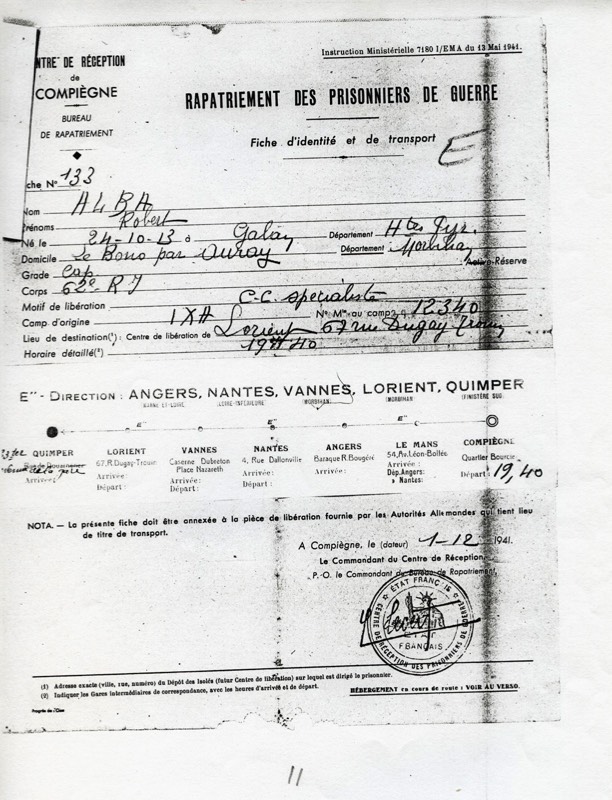 Instruction Ministérielle 7180 I/EMA du 13 Mai 1941.
NTRE DE RÉCEPTION
de
COMPIÈGNE
BUREAU
DE RAPATRIEMENT
RAPATRIEMENT DES PRISONNIERS DE GUERRE
Fiche d'identité et de transport
E
che N° 133
Nom ALBA
Prénoms Robert
Né le 24-10-13 à Galan Département Htes Pyr.
Domicile Le Bono par Auray Département Morbihan
Grade Cap. Active-Réserve
Corps 62e R I
Motif de libération C.C. spécialiste
Camp d'origine IXA N° Mle au camp 12340
Lieu de destination(1) : Centre de libération de Lorient 67 rue Dugay Trouin
Horaire détaillé(1) 19h40
E" - DIRECTION : ANGERS, NANTES, VANNES, LORIENT, QUIMPER
MAINE-ET-LOIRE LOIRE-INFÉRIEURE (MORBIHAN) (MORBIHAN (FINISTÈRE SUD
QUIMPER LORIENT VANNES NANTES ANGERS LE MANS COMPIÈGNE
67, R. Dugay-Trouin Caserne Dubreton 4, Rue Dallonville Baraque R. Bougère 54, Av. Léon-Bollée Quartier Bourcie
Place Nazareth
Arrivée : Arrivée : Arrivée : Arrivée : Arrivée : Arrivée : Départ : 19,40
Départ : Départ : Départ : Départ : Dép. Angers :
» Nantes :
NOTA. — La présente fiche doit être annexée à la pièce de libération fournie par les Autorités Allemandes qui tient lieu
de titre de transport.
A Compiègne, le (dateur) 1-12 1941.
Le Commandant du Centre de Réception
P.-O. le Commandant du Bureau de Rapatriement,
ÉTAT FRANÇAIS
CENTRE DE RÉCEPTION DES PRISONNIERS DE GUERRE
ÉTAT
FRANÇAIS
(1) Adresse exacte (ville, rue, numéro) du Dépôt des Isolés (futur Centre de libération) sur lequel est dirigé le prisonnier.
(2) Indiquer les Gares intermédiaires de correspondance, avec les heures d'arrivée et de départ.
HÉBERGEMENT en cours de route : VOIR AU VERSO.
Progrès de l'Oise
11